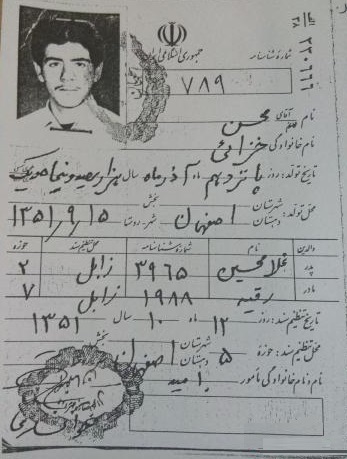 جمهوری اسلامی ایران
شماره شناسنامه
۷۸۹
نام آقای خانم محسن
نام خانوادگی خزائی
تاریخ تولد: روز پانزدهم آذر ماه سال هزار و سیصد و پنجاه و یک
محل تولد: شهرستان اصفهان بخش
دهستان شهر-روستا ۱۳۵۱/۹/۱۵
والدین نام شماره شناسنامه محل تنظیم سند حوزه
پدر غلامحسین ۳۹۶۵ زابل ۲
مادر رقیه ۱۹۸۸ زابل ۷
تاریخ تنظیم سند: روز ۱۲ ماه ۱۰ سال ۱۳۵۱
محل تنظیم سند: حوزه ۵ شهرستان اصفهان بخش
دهستان
نام و نام خانوادگی مأمور